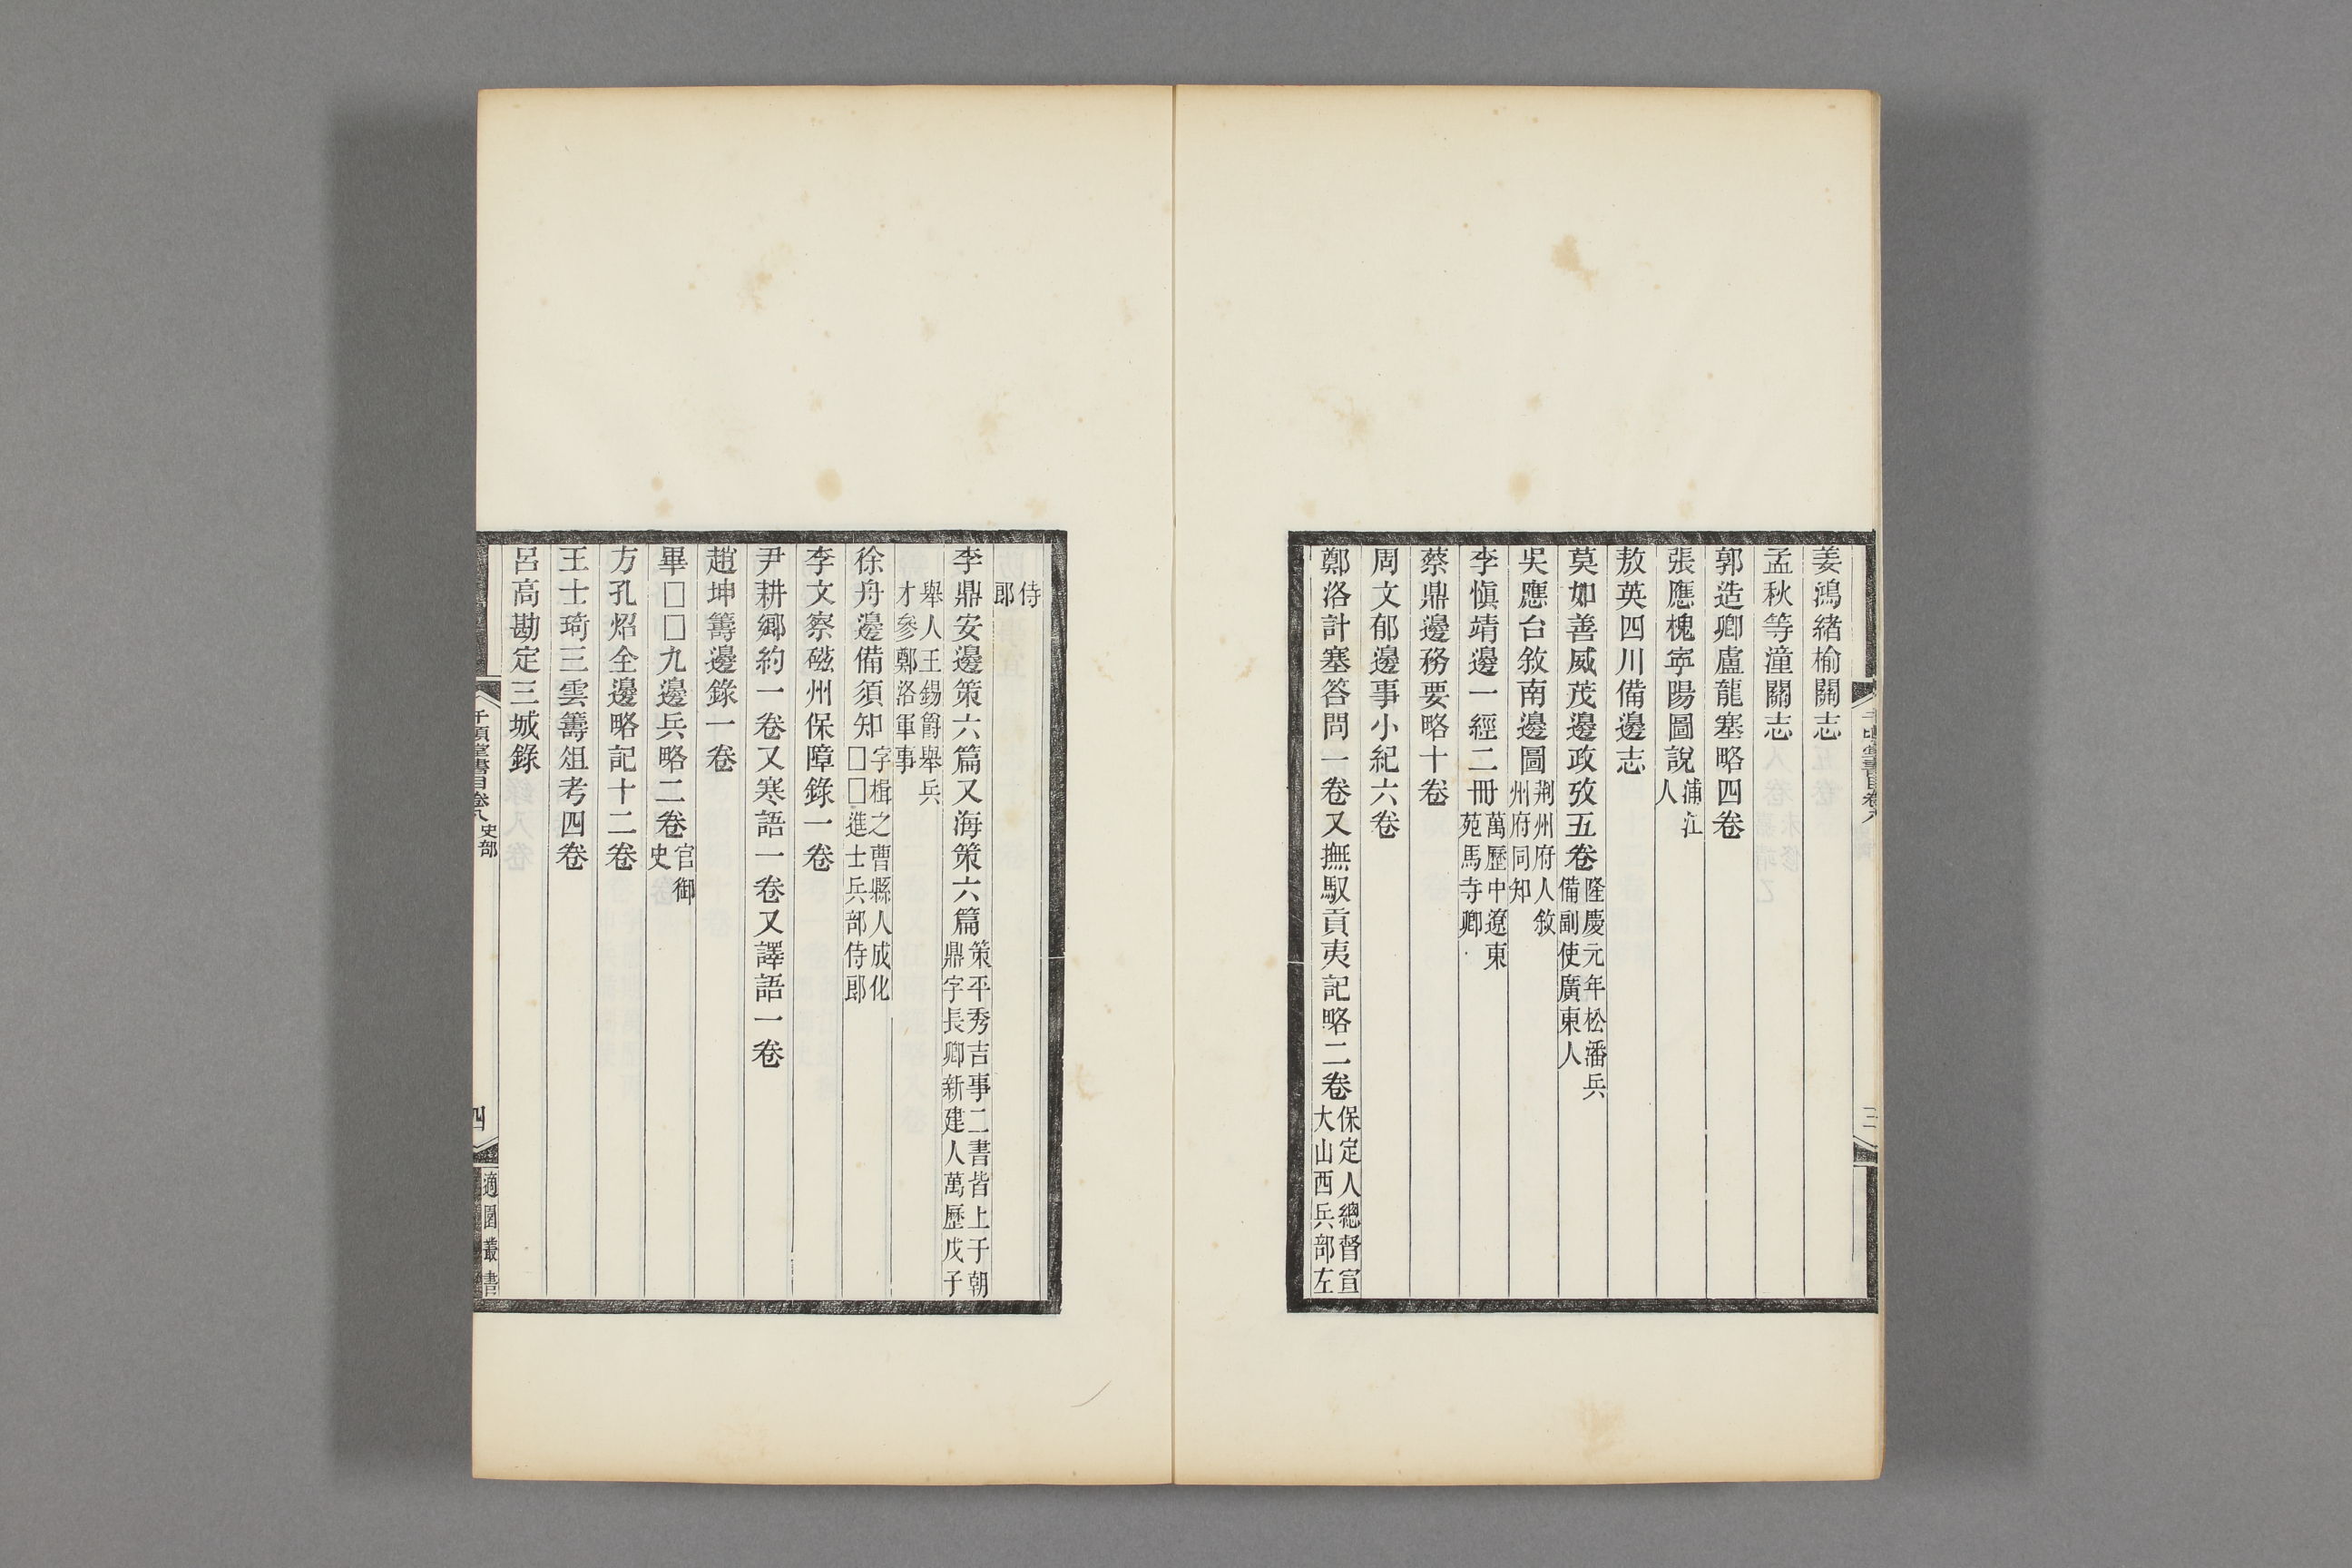 姜鴻緒榆關志
孟秋等潼關志
郭造卿盧龍塞略四卷
張應槐寧陽圖說浦江人
敖英四川備邊志
莫如善威茂邊政攷五卷隆慶元年松潘兵備副使廣東人
吳應台敘南邊圖荆州府人敘州府同知
李愼靖邊一經二冊萬歷中遼東苑馬寺卿
蔡鼎邊務要略十卷
周文郁邊事小紀六卷
鄭洛計塞答問一卷又撫馭貢夷記略二卷保定人總督宣大山西兵部左
侍郎
李鼎安邊策六篇又海策六篇策平秀吉事二書皆上于朝鼎字長卿新建人萬歷戊子
舉人王錫爵舉兵才參鄭洛軍事
徐舟邊備須知字楫之曹縣人成化□□進士兵部侍郎
李文察磁州保障錄一卷
尹耕鄉約一卷又寒語一卷又譯語一卷
趙坤籌邊錄一卷
畢□□九邊兵略二卷官御史
方孔炤全邊略記十二卷
王士琦三雲籌俎考四卷
呂高勘定三城錄
千頃堂書目卷八 史部
四
適園叢書